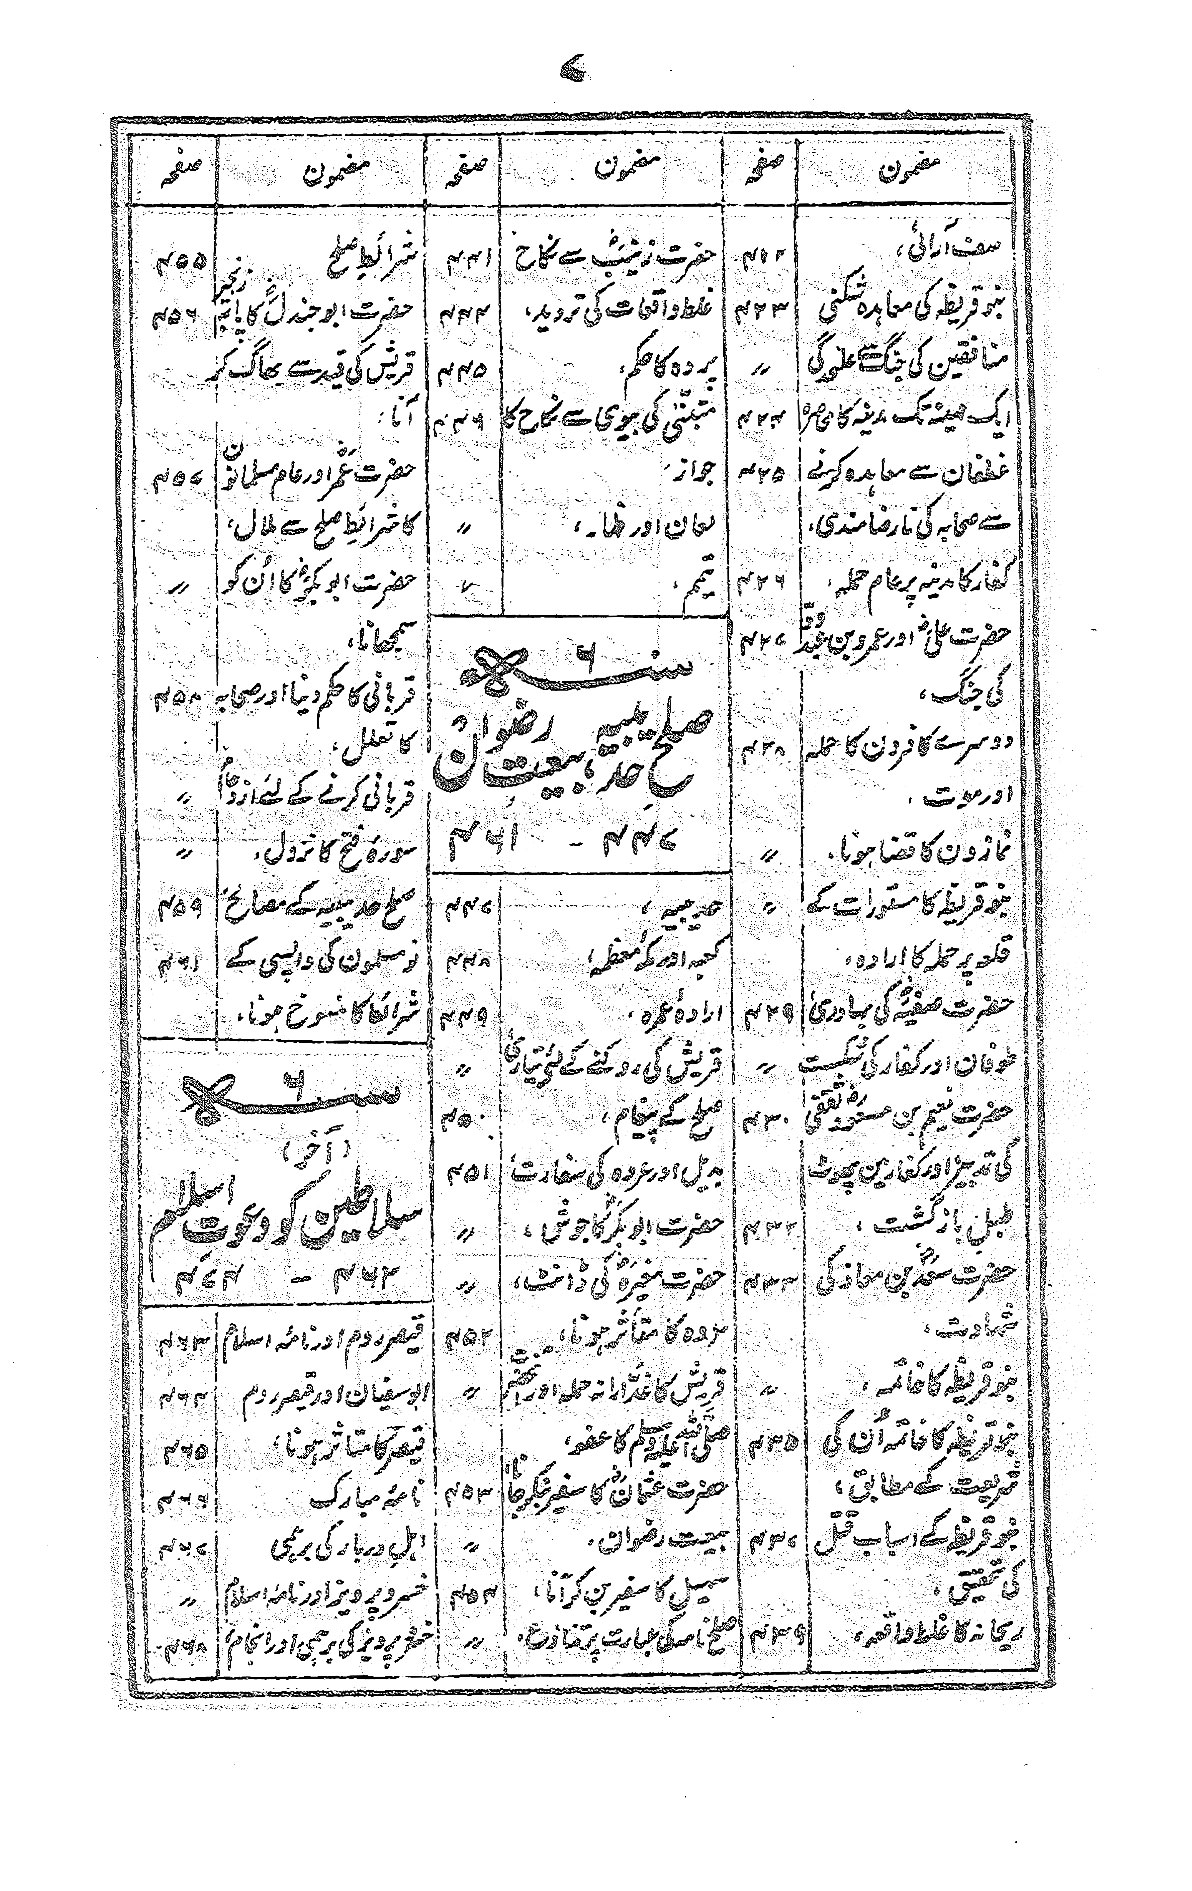 ۷
مضمون صفحہ
صف آرائی، ۴۱۲
بنو قریظہ کی معاہدہ شکنی ۴۲۳
منافقین کی جنگ سے علیحدگی 〃
ایک مہینہ تک مدینہ کا محاصرہ ۴۲۴
غطفان سے معاہدہ کرنے ۴۲۵
سے صحابہ کی نارضامندی،
کفار کا مدینہ پر عام حملہ، ۴۲۶
حضرت علیؓ اور عمرو بن عبدودّ ۴۲۷
کی جنگ،
دوسرے کافرون کا حملہ ۴۲۸
اور موت،
نمازون کا قضا ہونا، 〃
بنو قریظہ کا مستورات کے 〃
قلعہ پر حملہ کا ارادہ،
حضرت صفیہؓ کی بہادری ۴۲۹
طوفان اور کفار کی شکست 〃
حضرت نعیم بن مسعودؓ ثقفی ۴۳۰
کی تدبیر اور کفار مین پھوٹ
طبل بازگشت، ۴۳۲
حضرت سعدؓ بن معاذ کی ۴۳۳
شہادت،
بنو قریظہ کا خاتمہ، 〃
بنو قریظہ کا خاتمہ اُن کی ۴۳۵
شریعت کے مطابق،
بنو قریظہ کے اسباب قتل ۴۳۷
کی تحقیق،
ریحانہ کا غلط واقعہ، ۴۳۹
مضمون صفحہ
حضرت زینبؓ سے نکاح ۴۴۱
غلط واقعات کی تردید، ۴۴۲
پردہ کا حکم، ۴۴۵
متبنّیٰ کی بیوی سے نکاح کا ۴۴۶
جواز،
لعان اور ظہار، 〃
تیمم، 〃
سنہ ۶ ھ
صلح حدیبیہ، بیعت رضوان
۴۴۷ - ۴۶۱
حدیبیہ، ۴۴۷
کعبہ اور مکہ معظمہ، ۴۴۸
ارادۂ عمرہ، ۴۴۹
قریش کی روکنے کے لئے تیاری 〃
صلح کے پیغام، ۴۵۰
بدیل اور عروہ کی سفارت ۴۵۱
حضرت ابوبکرؓ کا جوش، 〃
حضرت مغیرہؓ کی ڈانٹ، 〃
عروہ کا متأثر ہونا، ۴۵۲
قریش کا غدّارانہ حملہ اور آنحضرت 〃
صلی اللہ علیہ وسلم کا عفو،
حضرت عثمانؓ کا سفیر بنکر جانا، ۴۵۳
بیعت رضوان، 〃
سہیل کا سفیر بن کر آنا، ۴۵۴
صلح نامہ کی عبارت پر تنازع، 〃
مضمون صفحہ
شرائط صلح ۴۵۵
حضرت ابو جندلؓ کا پابہ زنجیر ۴۵۶
قریش کی قید سے بھاگ کر
آنا،
حضرت عمرؓ اور عام مسلمانون ۴۵۷
کا شرائط صلح سے ملال،
حضرت ابوبکرؓ کا اُن کو 〃
سمجھانا،
قربانی کا حکم دینا اور صحابہ ۴۵۸
کا تعلل،
قربانی کرنے کے لئے ازدحام 〃
سورۂ فتح کا نزول، 〃
صلح حدیبیہ کے مصالح، ۴۵۹
نومسلمون کی واپسی کے ۴۶۱
شرائط کا منسوخ ہونا،
سنہ ۶ ھ
(آخر)
سلاطین کو دعوتِ اسلام
۴۶۲ - ۴۷۴
قیصر روم اور نامۂ اسلام ۴۶۳
ابوسفیان اور قیصر روم ۴۶۴
قیصر کا متاثر ہونا، ۴۶۵
نامۂ مبارک ۴۶۶
اہل دربار کی برہمی ۴۶۷
خسرو پرویز اور نامۂ اسلام 〃
خسرو پرویز کی برہمی اور انجام، ۴۶۸